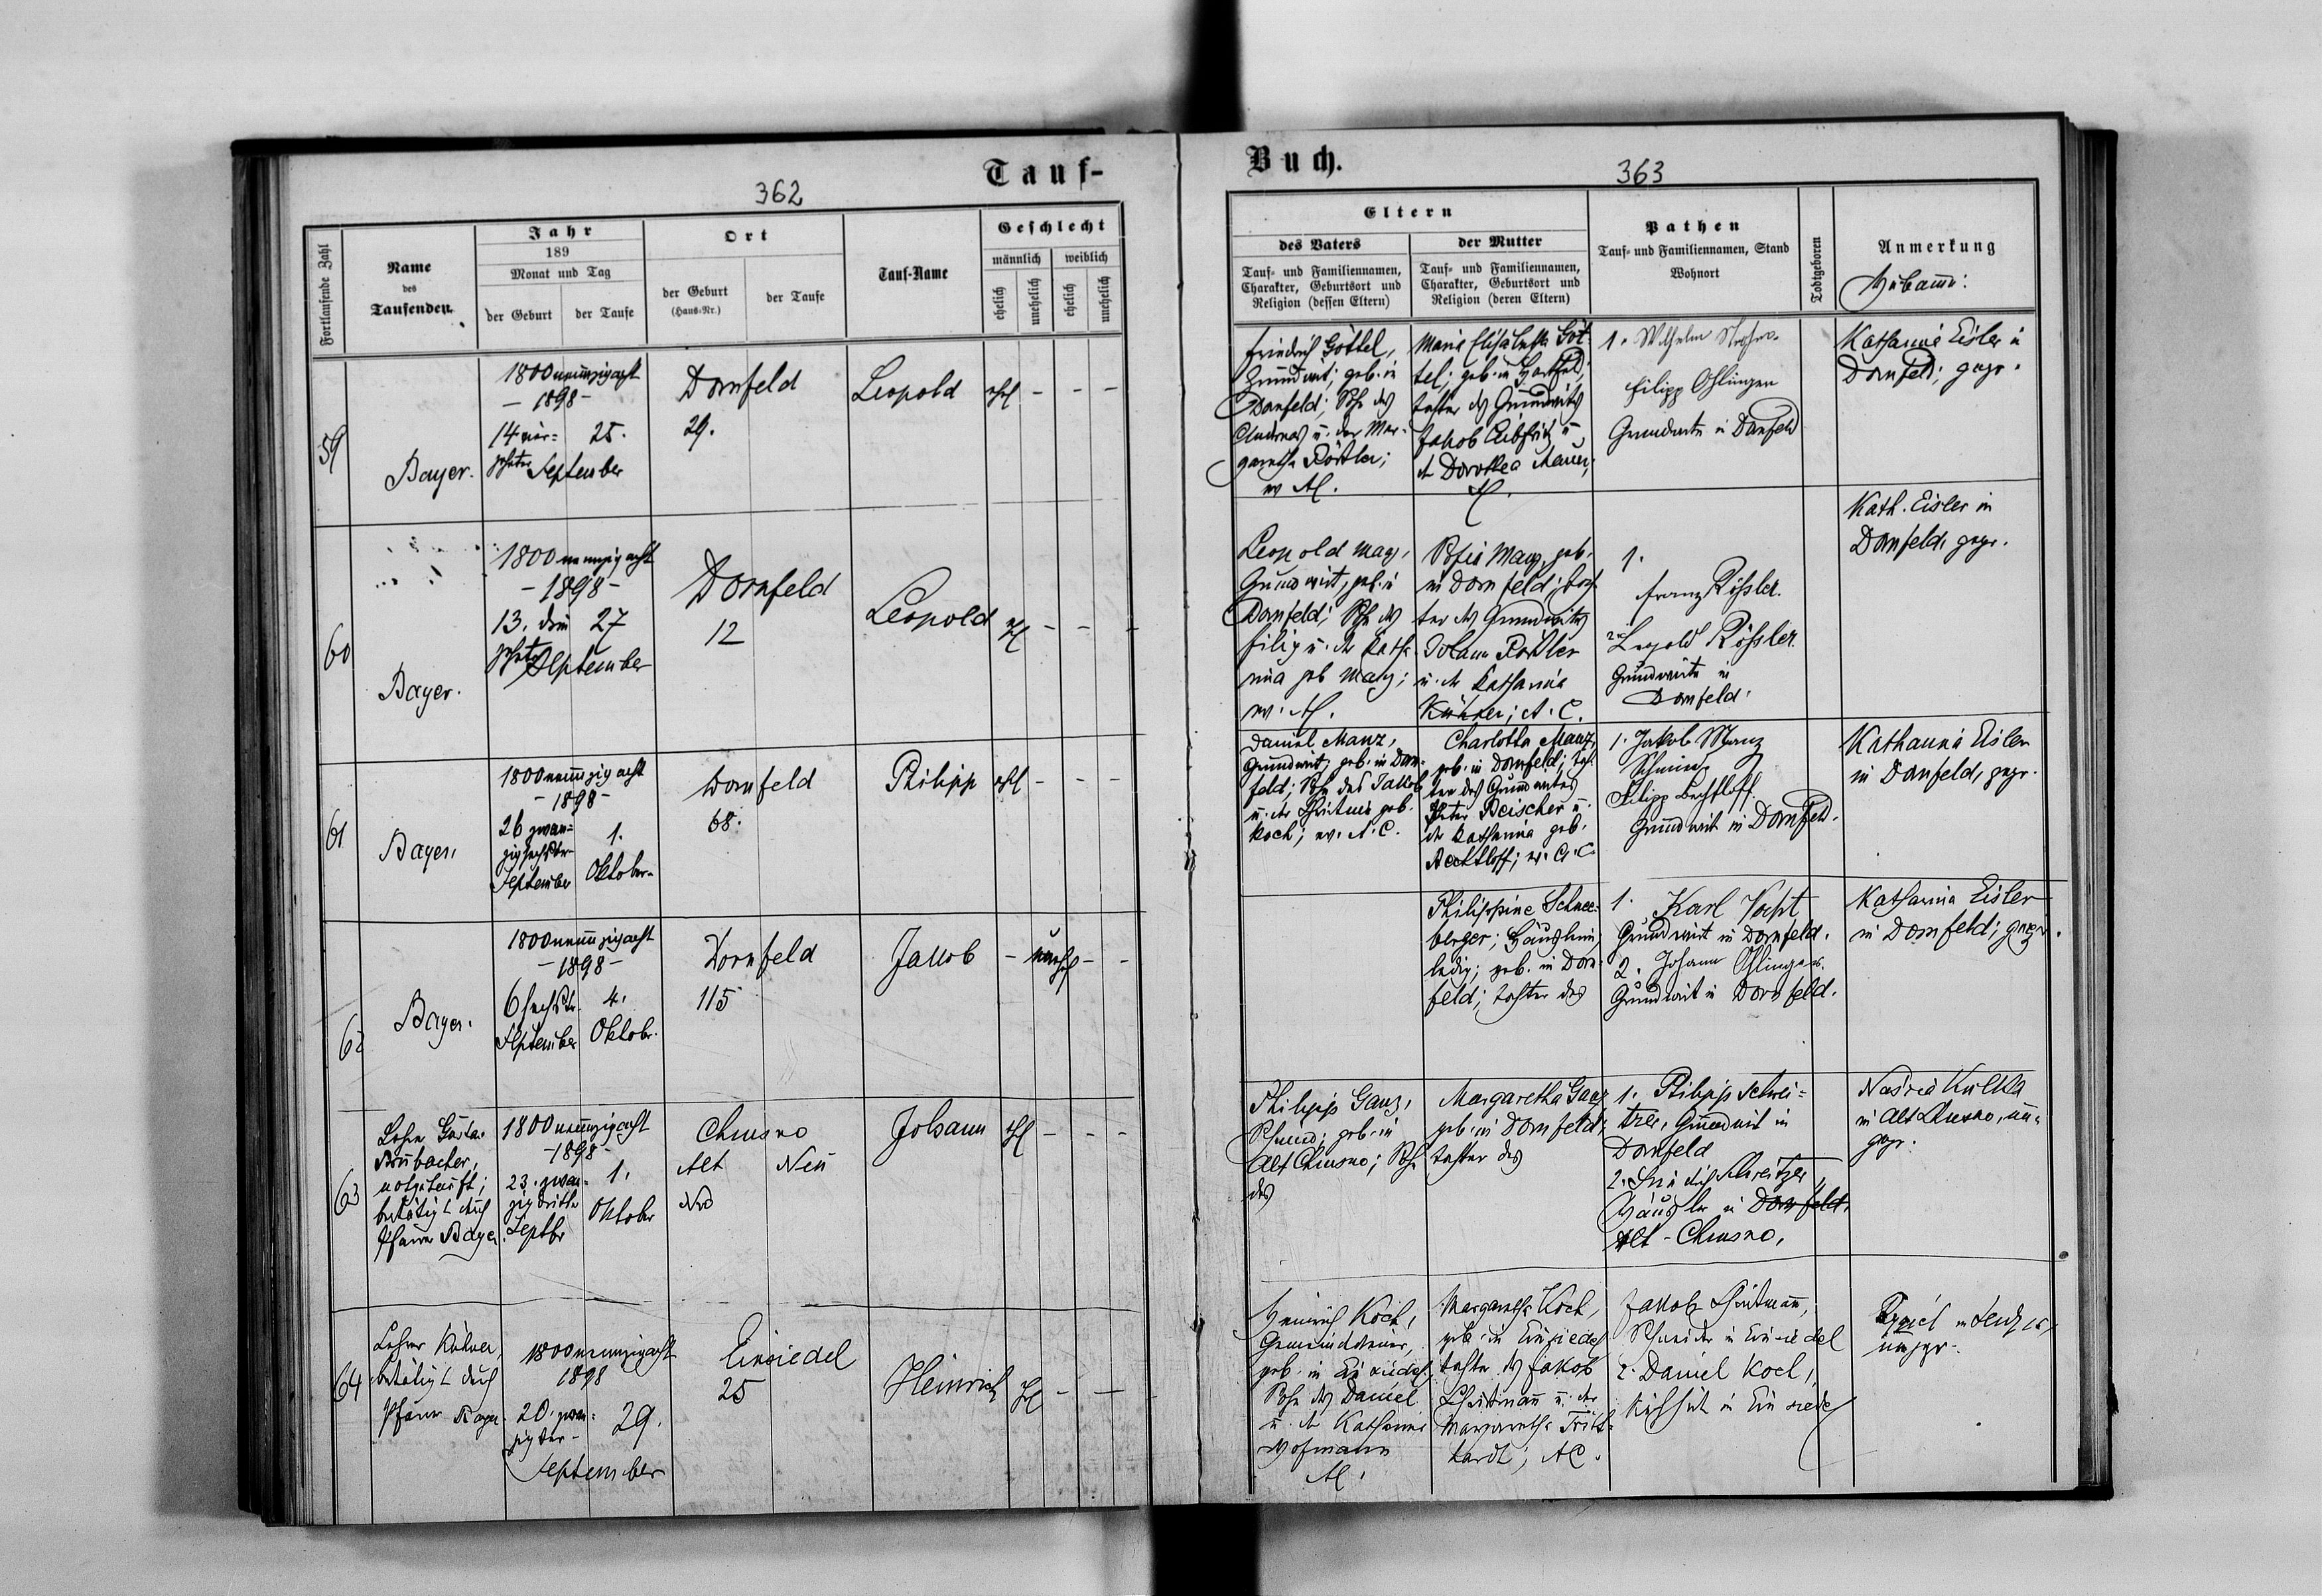 Tauf-
362
Fortlaufende Zahl
Name
des
Taufenden
Jahr
189
Monat und Tag
der Geburt
der Taufe
Ort
der Geburt
(Haus-Nr.)
der Taufe
Tauf-Name
Geschlecht
männlich
weiblich
ehelich
unehelich
ehelich
unehelich
59
Bayer.
1800 neunzig acht
- 1898 -
14 vier=
zehnter
25.
September
Dornfeld
29.
Leopold
ehel
- - -
60
Bayer.
1800 neunzig acht
- 1898 -
13. drei
zehnter
27
September
Dornfeld
12
Leopold
ehl
- - -
61
Bayer.
1800 neunzig acht
- 1898 -
26 zwan=
zigsechster
September
1.
Oktober
Dornfeld
68.
Philipp
ehl
- - -
62
Bayer.
1800 neunzig acht
- 1898 -
6 sechster
September
4.
Oktober
Dornfeld
115
Jakob
- unehel - -
63
notgetauft;
bestätigt durch
Pfarrer Bayer
1800 neunzig acht
- 1898 -
23. zwan=
zigdritter
Septbr
1.
Oktober
Chrusno
Alt Neu
Nro
Johann
ehl
- - -
64
bestätigt durch
Pfarrer Bayer
1800 neunzig acht
1898
20. zwan=
zigster
September
29.
Einsiedel
25
Heinrich
ehl
- -
Buch.
363
Eltern
des Vaters
Tauf- und Familiennamen,
Charakter, Geburtsort und
Religion (dessen Eltern)
der Mutter
Tauf- und Familiennamen,
Charakter, Geburtsort und
Religion (deren Eltern)
Pathen
Tauf- und Familiennamen, Stand
Wohnort
Todtgeboren
Anmerkung
Hebamme:
Friedrich Göttel,
Grundwirt; geb. in
Dornfeld; Sohn des
Andreas u. der Mar-
garetha Rößler;
ev AC.
Maria Elisabetha Göt-
tel; geb. in Hartfeld;
Tochter des Grundwirts
Jakob u
der Dorothea Mauer;
AC.
1. Wilhelm
Filipp Ohlinger
Grundwirte in Dornfeld
Katharina Eisler in
Dornfeld; gepr.
Leopold Manz,
Grundwirt, geb. in
Dornfeld; Sohn des
Filipp u. der Katha-
rina geb Manz;
ev. AC.
Sofia Manz, geb.
in Dornfeld; Toch-
ter des Grundwirts
Johann Rößler
u. der Katharina
Kühner; A. C.
1.
Franz Rößler.
2. Leopold Rößler.
Grundwirte in
Dornfeld.
Kath. Eisler in
Dornfeld, gepr.
Daniel Manz,
Grundwirt, geb. in Dorn-
feld; Sohn des Jakob
u. der Christina geb.
Koch; ev. A. C.
Charlotta Manz,
geb. in Dornfeld; Toch-
ter des Grundwirtes
Peter Beischer u.
der Katharina geb.
Bechtloff; ev. A. C.
1. Jakob Manz
Schmied
Filipp Bechtloff.
Grundwirt in Dornfeld.
Katharina Eisler
in Dornfeld, gepr.
Philippine Schnee-
berger; Häuslerin,
ledig; geb. in Dorn-
feld; Tochter des
1. Karl Vogt
Grundwirt in Dornfeld.
2. Johann Ohlinger.
Grundwirt in Dornfeld.
Katharina Eisler
in Dornfeld; gepr.
Philipp Ganz,
Schmied; geb. in
Alt Chrusno; Sohn
des
Margaretha Ganz
geb. in Dornfeld;
Tochter des
1. Philipp Schwei=
tzer, Grundwirt in
Dornfeld
2. Friedrich Schweitzer,
Häusler in Dornfeld.
Alt-Chrusno.
in Alt Chrusno, un-
gepr.
Heinrich Koch,
Gemeindediener,
geb. in Einsiedel,
Sohn des Daniel
u. der Katharina
Hofmann
AC.
Margaretha Koch,
geb. in Einsiedel
Tochter des Jakob
u. der
Margaretha
; AC.
Jakob
Schneider in Einsiedel
2. Daniel Koch,
in Einsiedel
ungepr.